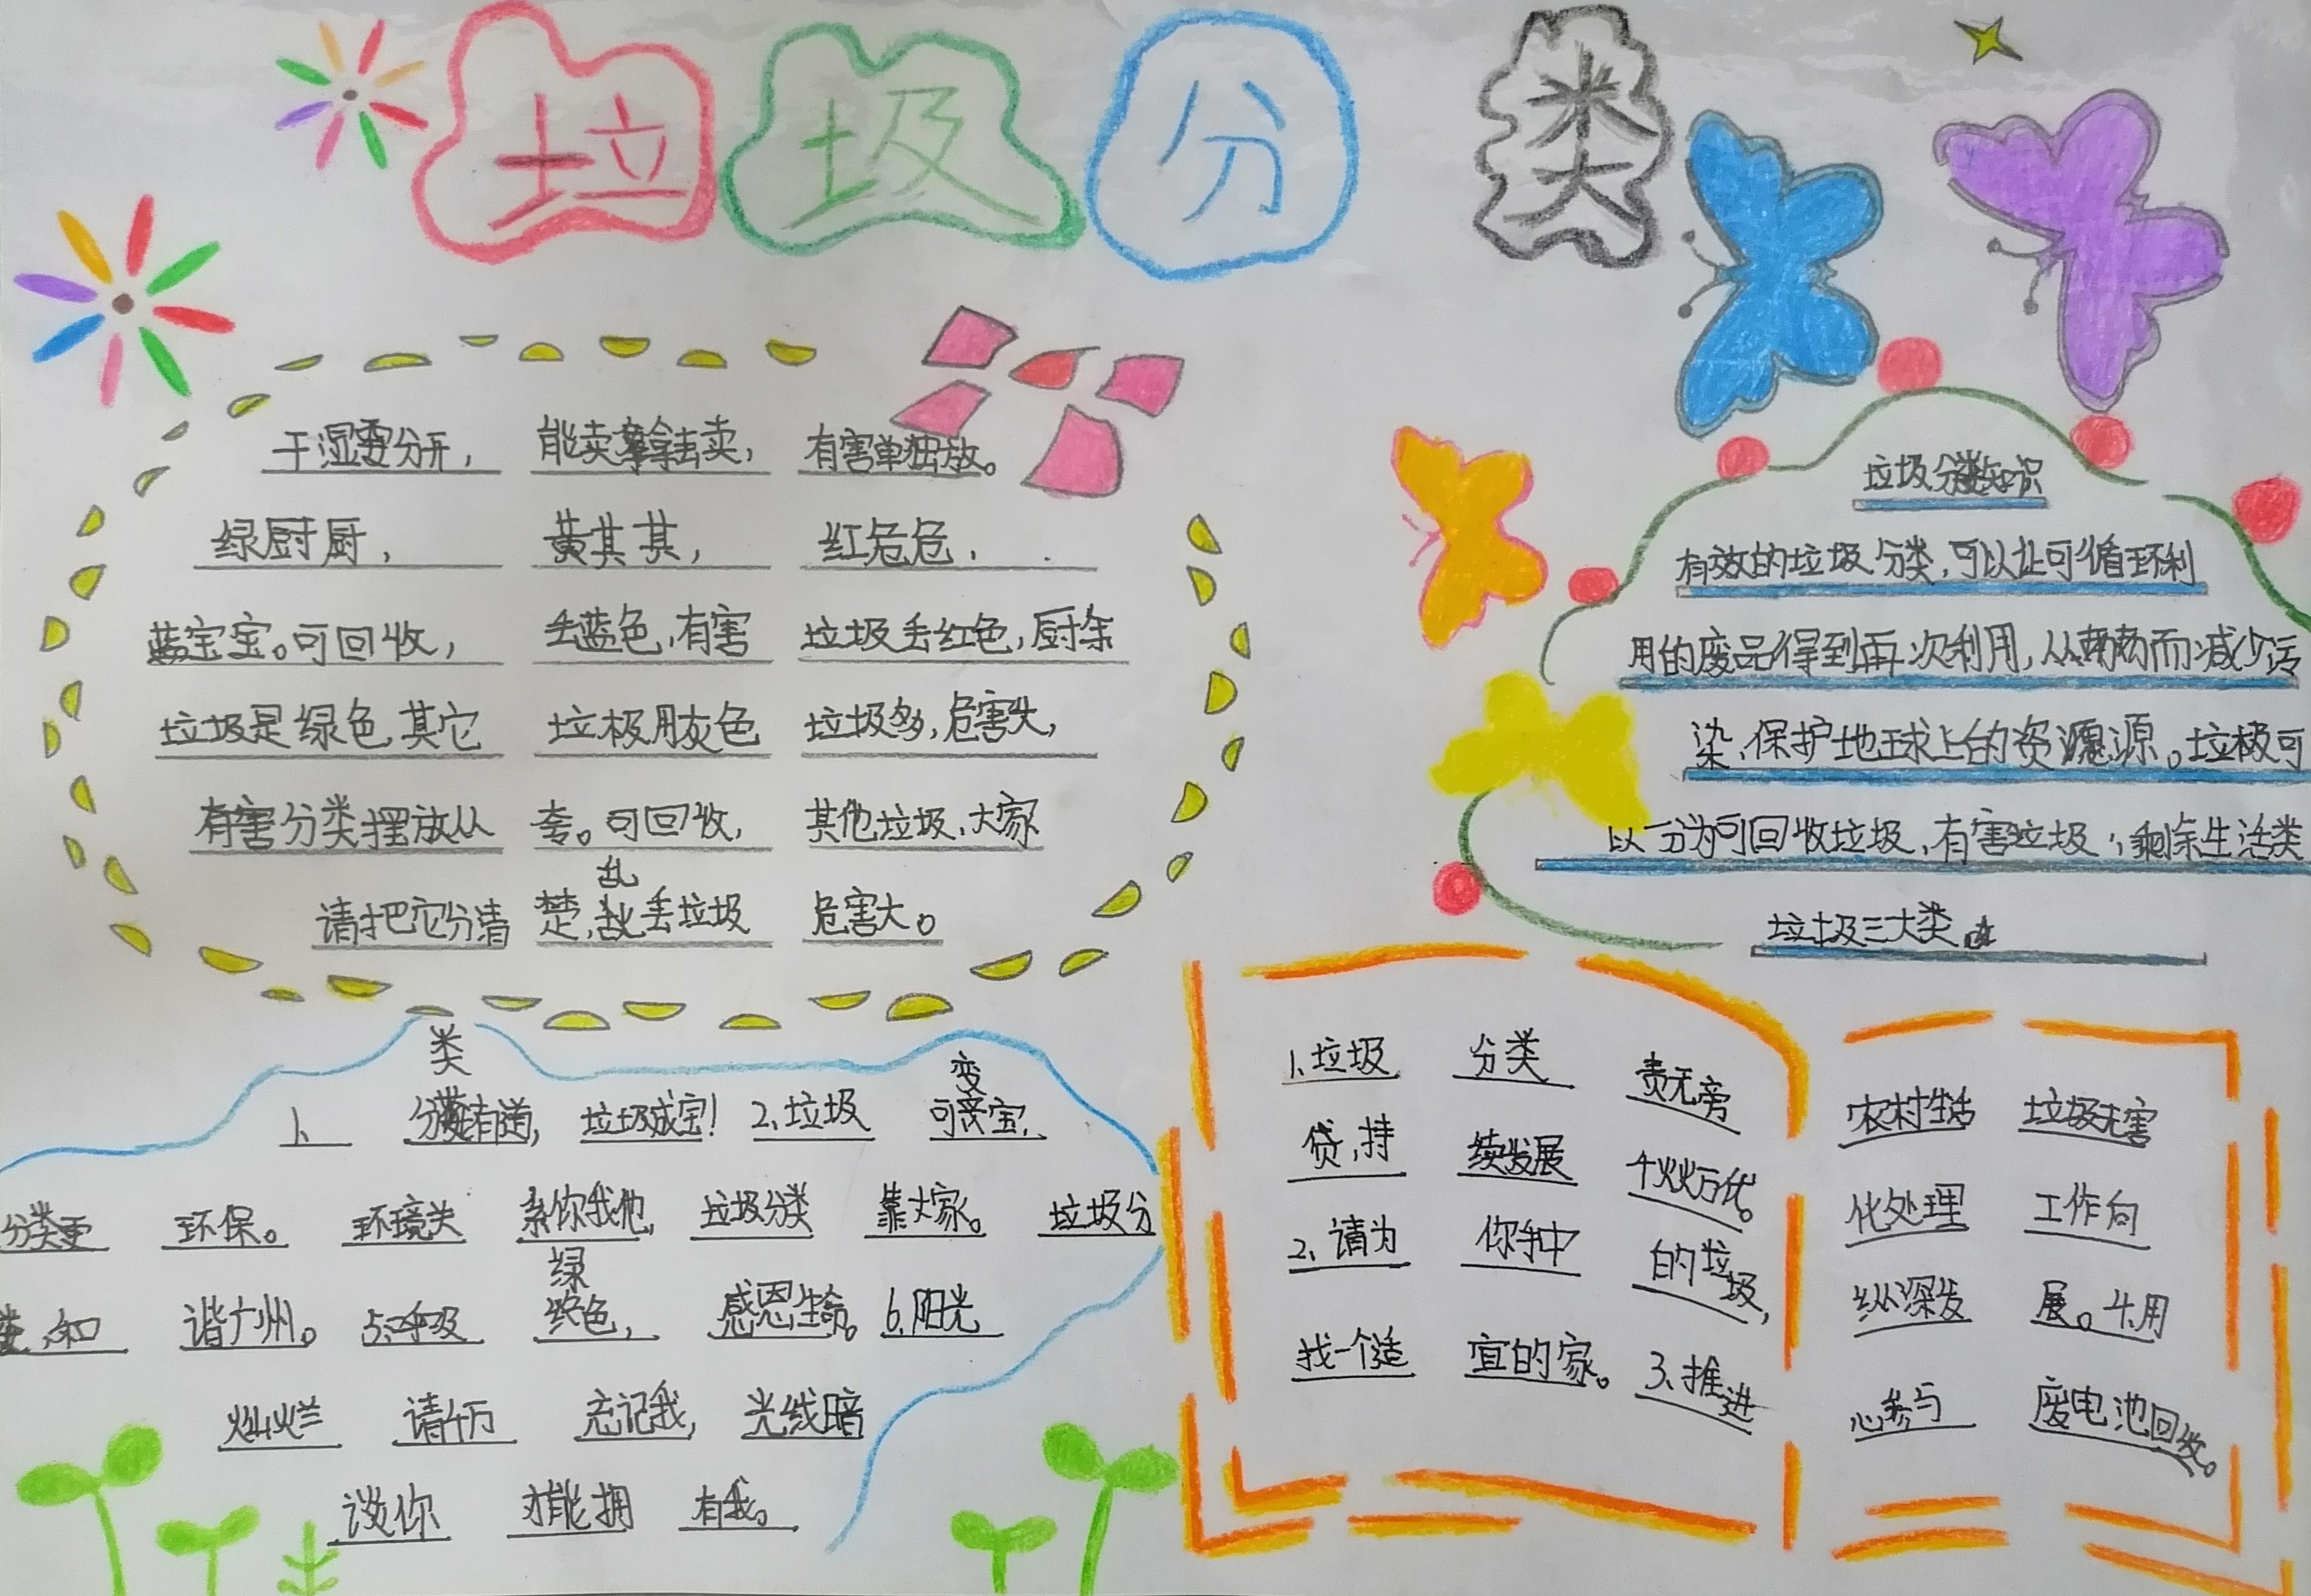 垃圾分类
干湿要分开, 能卖拿去卖, 有害单独放。
绿厨厨, 黄其其, 红危危,
蓝宝宝。可回收, 丢蓝色,有害 垃圾丢红色,厨余
垃圾是绿色,其它 垃极用灰色 垃圾多,危害大,
有害分类摆放从 夸。可回收, 其他垃圾,大家
请把它分清 楚,乱丢垃圾 危害大。
垃圾分类知识
有效的垃圾分类,可以让可循环利
用的废品得到再次利用,从而减少污
染,保护地球上的资源。垃极可
以分为可回收垃圾,有害垃圾,剩余生活类
垃圾三大类。
1、分类有道, 垃圾成宝! 2、垃圾 可变宝,
分类更 环保。 环境关 系你我他, 垃圾分类 靠大家。 垃圾分
类,和 谐广州。 5、呼吸 绿色, 感恩生命。 6、阳光
灿烂 请千万 忘记我, 光线暗
淡你 才能拥 有我。
1、垃圾 分类 责无旁
贷,持 续发展 千秋万代。
2、请为 你手中 的垃圾,
找一个适 宜的家。 3、推进
农村生活 垃圾无害
化处理 工作向
纵深发 展。4、用
心参与 废电池回收。